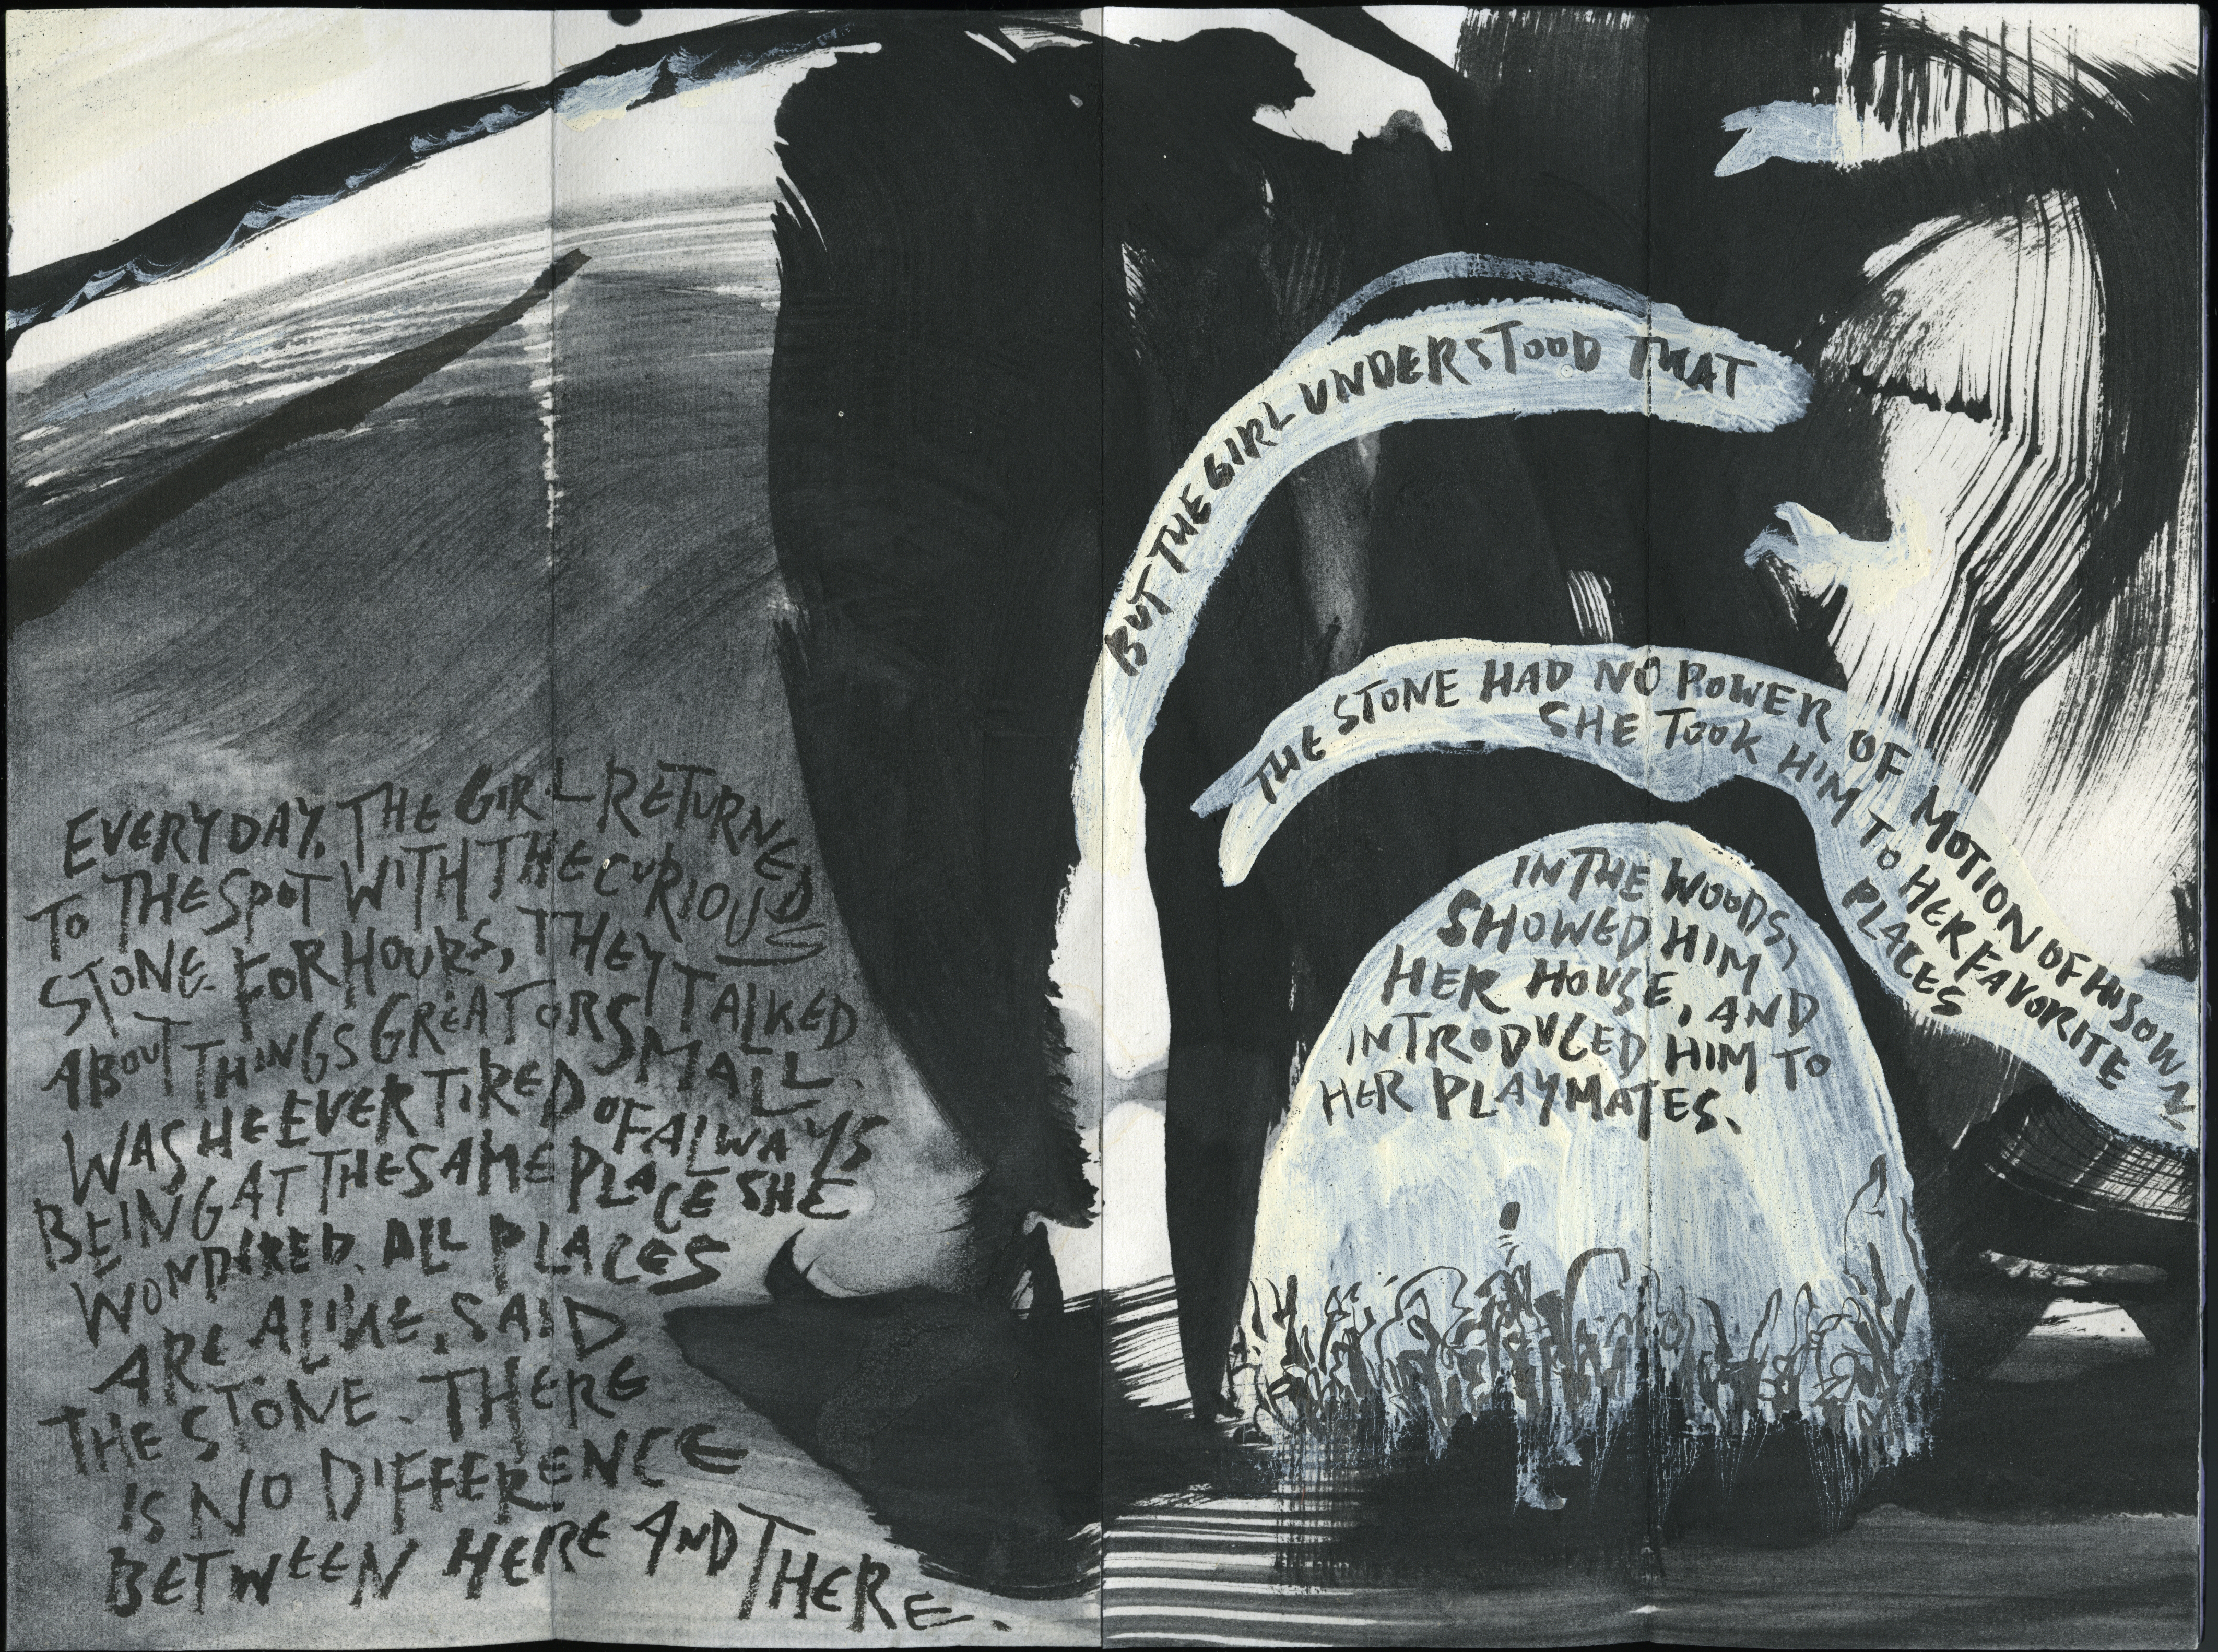 EVERYDAY, THE GIRL RETURNED
TO THE SPOT WITH THE CURIOUS
STONE. FOR HOURS, THEY TALKED
ABOUT THINGS GREAT OR SMALL.
WAS HE EVER TIRED OF ALWAYS
BEING AT THE SAME PLACE SHE
WONDIRED. ALL PLACES
ARE ALIKE, SAID
THE STONE. THERE
IS NO DIFFERENCE
BETWEEN HERE AND THERE.
BUT THE GIRL UNDERSTOOD THAT
THE STONE HAD NO POWER OF MOTION OF HIS OWN
SHE TOOK HIM TO HER FAVORITE
PLACES
IN THE WOODS,
SHOWED HIM
HER HOUSE, AND
INTRODUCED HIM TO
HER PLAYMATES.